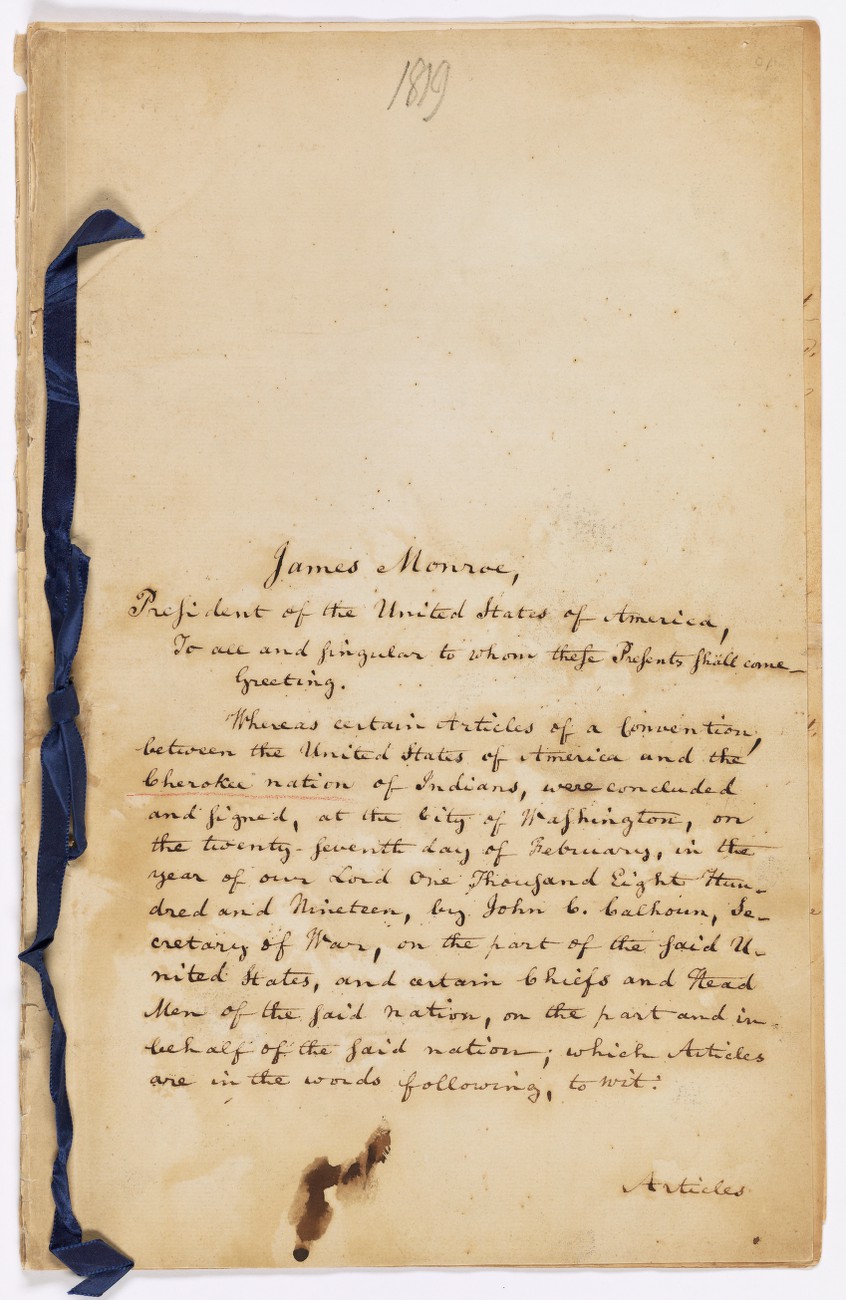 1819
James Monroe,
President of the United States of America,
To all and singular to whom these Presents shall come—
Greeting.
Whereas certain Articles of a Convention,
between the United States of America and the
Cherokee nation of Indians, were concluded
and signed, at the City of Washington, on
the twenty-seventh day of February, in the
year of our Lord One Thousand Eight Hun-
dred and Nineteen, by John C. Calhoun, Se-
cretary of War, on the part of the said U-
nited States, and certain Chiefs and Head
Men of the said nation, on the part and in
behalf of the said nation; which Articles
are in the words following, to wit:
Articles